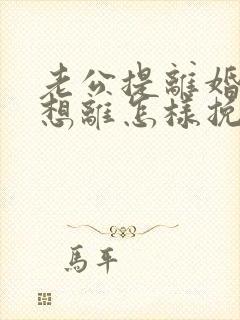 老公提離婚
想離怎樣挽
馬平